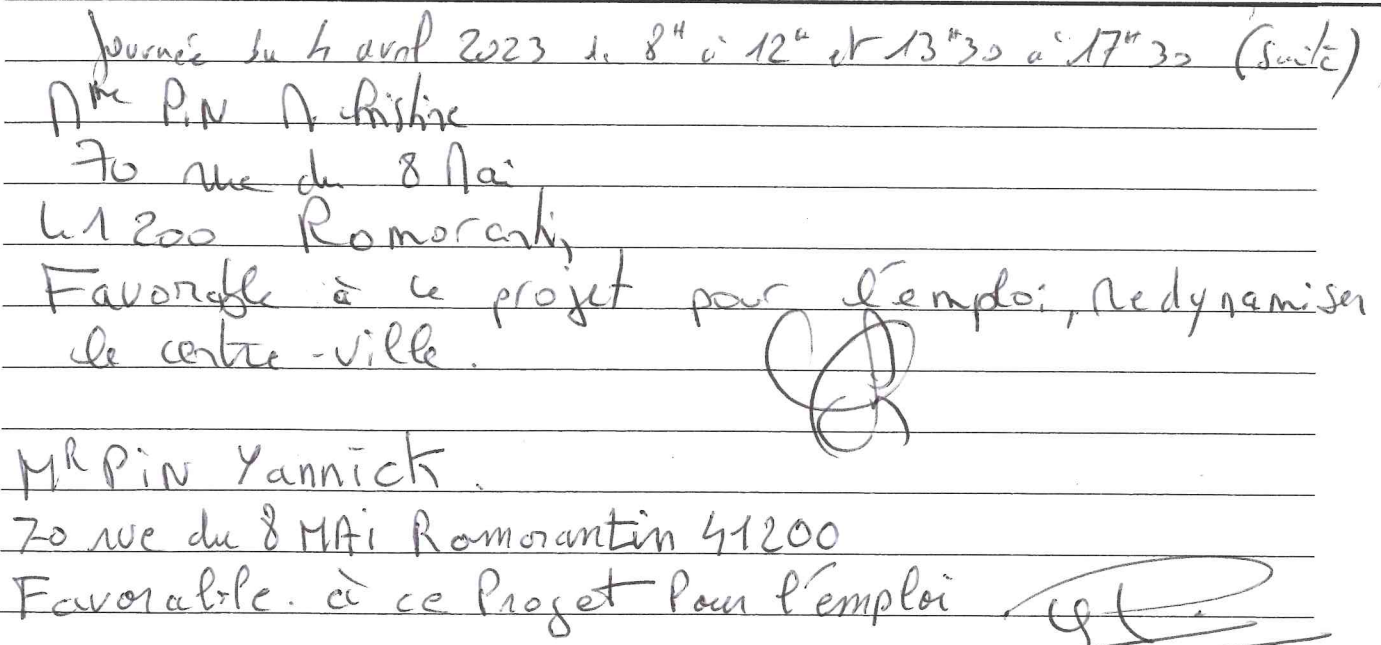 Journée du 4 avril 2023 de 8H à 12H et 13H30 à 17H30 (suite)
Mme PiN M. Christine
70 rue du 8 Mai
41200 Romorantin
Favorable à ce projet pour l'emploi, Redynamiser
le centre-ville.
MR PiN Yannick.
70 rue du 8 MAi Romorantin 41200
Favorable à ce Projet Pour l'emploi